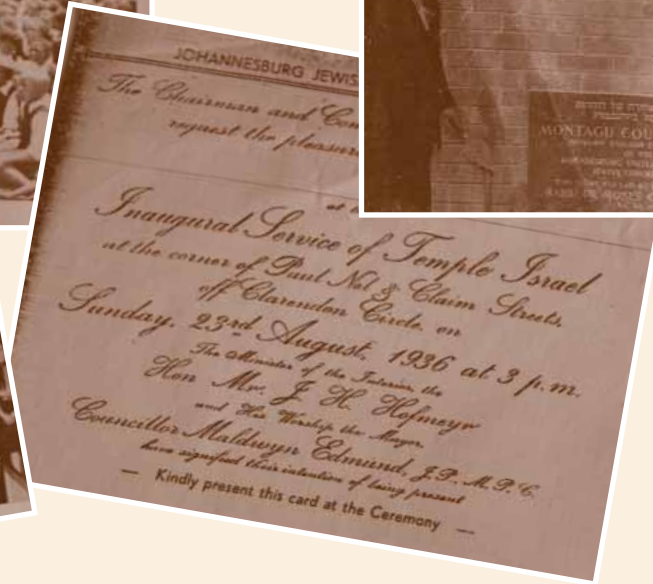 JOHANNESBURG JEWIS
The Chairman and Com
request the pleasure
at
Inaugural Service of Temple Israel
at the corner of Paul Nel & Claim Streets,
off Clarendon Circle, on
Sunday, 23rd August, 1936 at 3 p.m.
The Minister of the Interior, the
Hon Mr. J. H. Hofmeyr
and His Worship the Mayor,
Councillor Maldwyn Edmund, J.P. M.P.C.
have signified their intention of being present
— Kindly present this card at the Ceremony —
MONTAGU COU